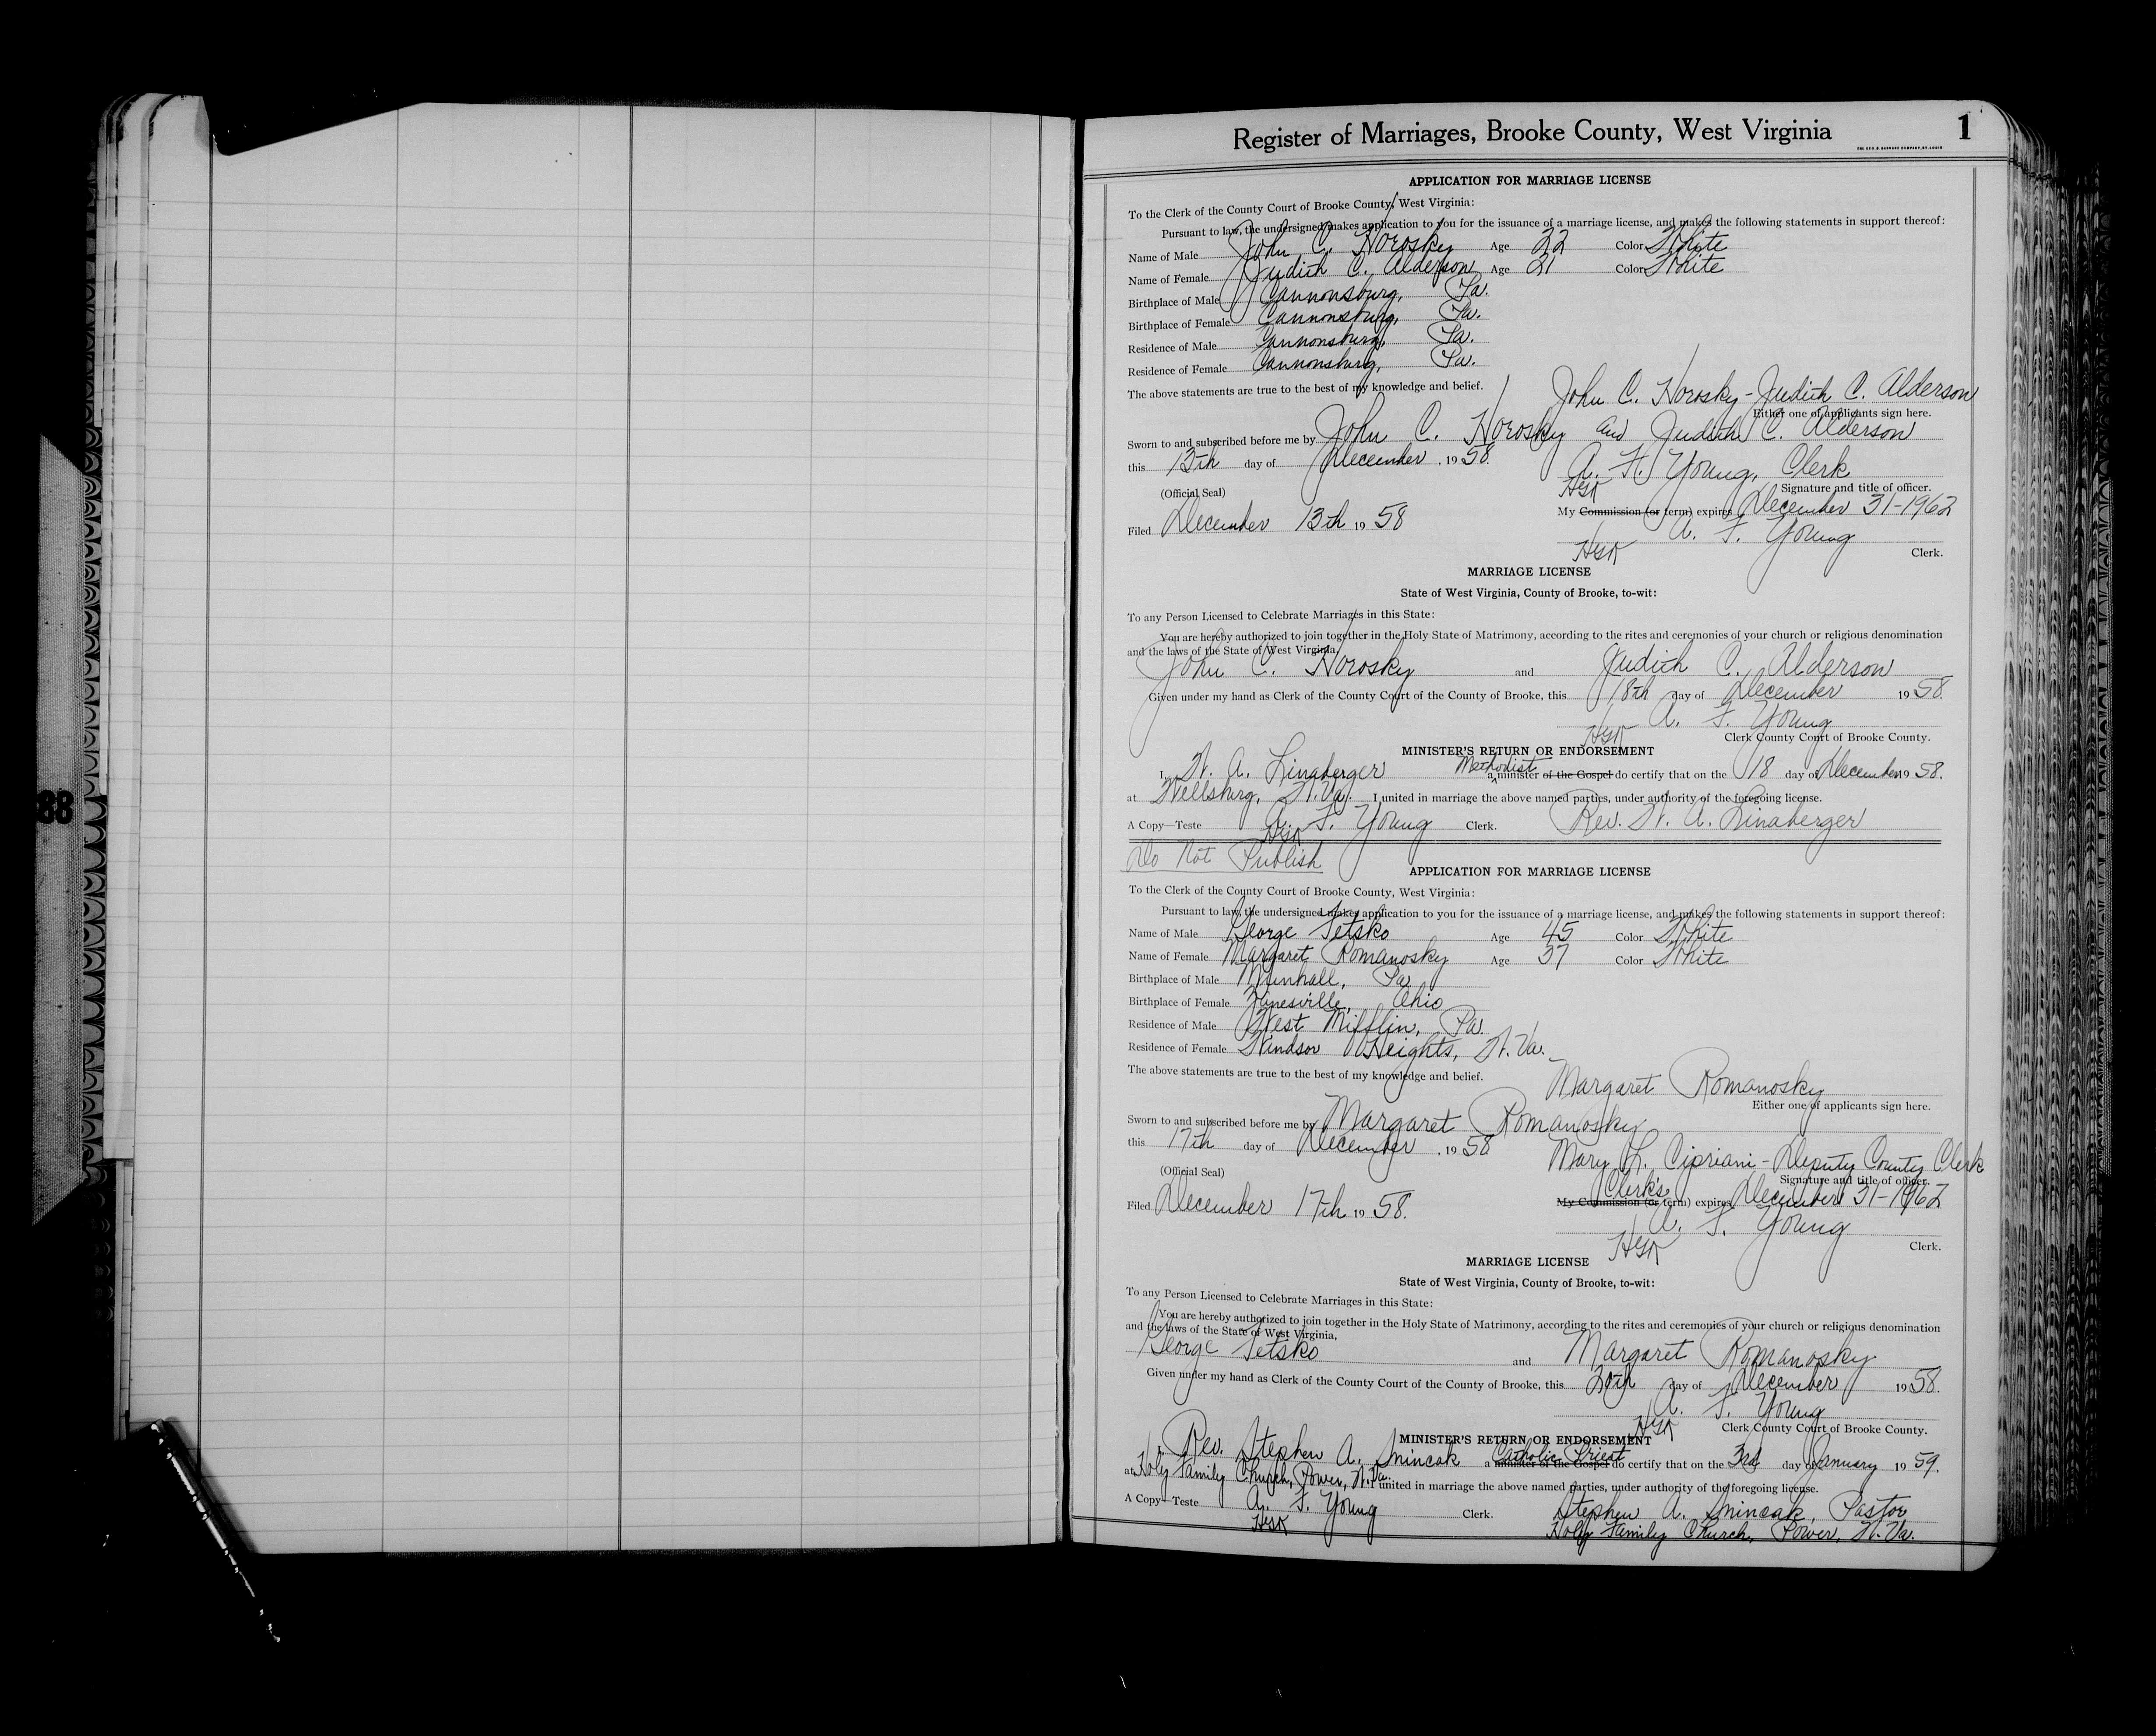 Register of Marriages, Brooke County, West Virginia 1
APPLICATION FOR MARRIAGE LICENSE
To the Clerk of the County Court of Brooke County, West Virginia:
Pursuant to law, the undersigned makes application to you for the issuance of a marriage license, and makes the following statements in support thereof:
Name of Male John C. Horosky Age 22 Color White
Name of Female Judith C. Alderson Age 21 Color White
Birthplace of Male Cannonsburg, Pa.
Birthplace of Female Cannonsburg, Pa.
Residence of Male Cannonsburg, Pa.
Residence of Female Cannonsburg, Pa.
The above statements are true to the best of my knowledge and belief.
John C. Horosky - Judith C. Alderson
Either one of applicants sign here.
Sworn to and subscribed before me by John C. Horosky and Judith C. Alderson
this 13th day of December, 1958.
A. F. Young, Clerk
(Official Seal) HGK Signature and title of officer.
My Commission (or term) expires December 31-1962
Filed December 13th 1958
A. F. Young
HGK Clerk.
MARRIAGE LICENSE
State of West Virginia, County of Brooke, to-wit:
To any Person Licensed to Celebrate Marriages in this State:
You are hereby authorized to join together in the Holy State of Matrimony, according to the rites and ceremonies of your church or religious denomination
and the laws of the State of West Virginia,
John C. Horosky and Judith C. Alderson
Given under my hand as Clerk of the County Court of the County of Brooke, this 18th day of December 1958.
A. F. Young
HGK Clerk County Court of Brooke County.
MINISTER'S RETURN OR ENDORSEMENT
I, W. A. Linaberger a Methodist minister of the Gospel do certify that on the 18 day of December 1958.
at Wellsburg, W. Va. I united in marriage the above named parties, under authority of the foregoing license.
A Copy—Teste A. F. Young Clerk. Rev. W. A. Linaberger
HGK
Do Not Publish
APPLICATION FOR MARRIAGE LICENSE
To the Clerk of the County Court of Brooke County, West Virginia:
Pursuant to law, the undersigned makes application to you for the issuance of a marriage license, and makes the following statements in support thereof:
Name of Male George Fetsko Age 45 Color White
Name of Female Margaret Romanosky Age 37 Color White
Birthplace of Male Munhall, Pa
Birthplace of Female Zanesville, Ohio
Residence of Male West Mifflin, Pa.
Residence of Female Windsor Heights, W. Va.
The above statements are true to the best of my knowledge and belief.
Margaret Romanosky
Either one of applicants sign here.
Sworn to and subscribed before me by Margaret Romanosky
this 17th day of December, 1958
Mary L. Cipriani - Deputy County Clerk
(Official Seal) Signature and title of officer.
Clerk's
My Commission (or term) expires December 31-1962
Filed December 17th 1958.
A. F. Young
HGK Clerk.
MARRIAGE LICENSE
State of West Virginia, County of Brooke, to-wit:
To any Person Licensed to Celebrate Marriages in this State:
You are hereby authorized to join together in the Holy State of Matrimony, according to the rites and ceremonies of your church or religious denomination
and the laws of the State of West Virginia,
George Fetsko and Margaret Romanosky
Given under my hand as Clerk of the County Court of the County of Brooke, this 20th day of December 1958.
A. F. Young
HGK Clerk County Court of Brooke County.
MINISTER'S RETURN OR ENDORSEMENT
I, Rev. Stephen A. Smincak a Catholic Priest minister of the Gospel do certify that on the 3rd day January 1959.
at Holy Family Church, Power, W. Va. I united in marriage the above named parties, under authority of the foregoing license.
A Copy—Teste A. F. Young Clerk. Stephen A. Smincak, Pastor
HGK Holy Family Church, Power, W. Va.
88